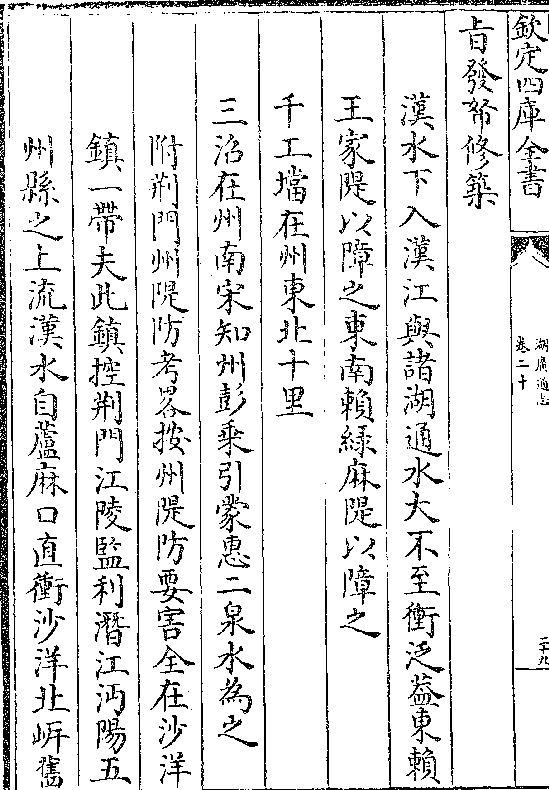 欽定四庫全書
湖廣通志
卷二十
二十九
旨發帑修築
漢水下入漢江與諸湖通水大不至衝泛益東賴
王家隄以障之東南賴綠麻隄以障之
千工壋在州東北十里
三沿在州南宋知州彭乘引蒙惠二泉水為之
附荆門州隄防考畧按州隄防要害全在沙洋
鎮一帶夫此鎮控荆門江陵監利潛江沔陽五
州縣之上流漢水自蘆麻口直衝沙洋北㟁舊